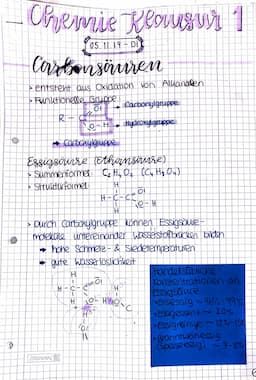 Chemie Klausur 1
05.11.19 - DI
Carbonsäuren
• entsteht aus Oxidation von Alkanalen
• Funktionelle Gruppe
R - C
O
O - H
→ Carbonylgruppe
→ Hydroxylgruppe
→ Carboxylgruppe
Essigsäure (Ethansäure)
• Summenformel C₂H₄O₂
• Strukturformel
H O
H - C - C
H O - H
• Durch Carboxylgruppe können Essigsäure-
moleküle untereinander Wasserstoffbrücken bilden
→ hohe Schmelz- & Siedetemperaturen
→ gute Wasserlöslichkeit
Handelsübliche
Konzentrationen der
Essigsäure
• Essigessenz
• Branntweinessig
(Speiseessig)